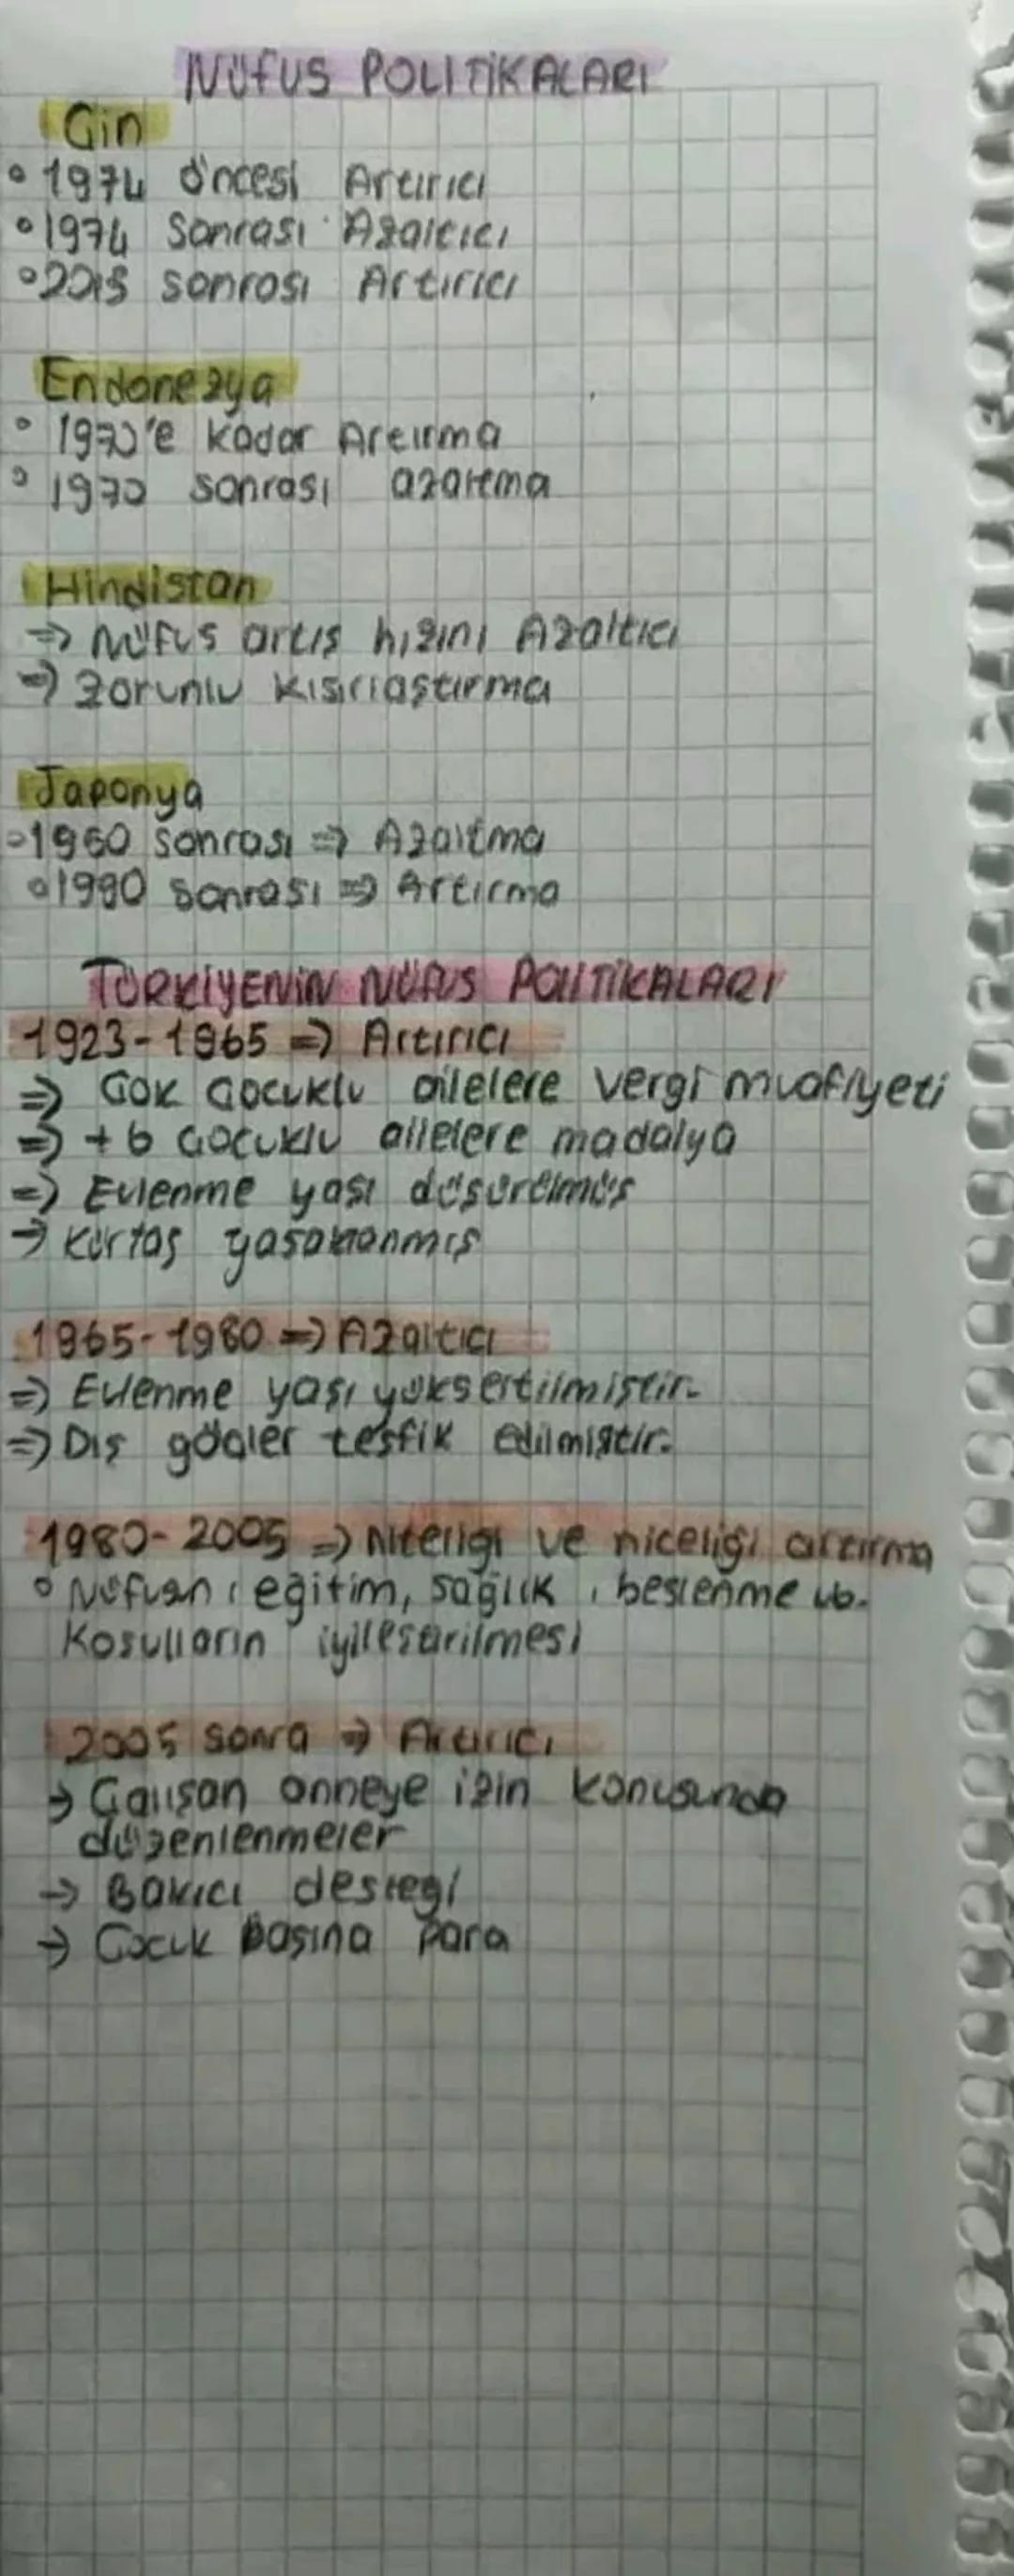 NÜFUS POLITIKALARI
Çin
1974 öncesi Artırıcı
1974 Sonrası Azaltıcı
2015 sonrası Artırıcı
Endonezya
1970'e kadar Artırma
1970 sonrası azaltma
Hindistan
⇒ Nüfus artış hızını Azaltıcı
⇒ Zorunlu kısırlaştırma
Japonya
1960 sonrası ⇒ Azaltma
1990 sonrası ⇒ Artırma
TÜRKİYENİN NÜFUS POLITIKALARI
1923-1965 ⇒ Artırıcı
⇒ Çok çocuklu ailelere vergi muafiyeti
⇒ +6 çocuklu ailelere madalya
⇒ Evlenme yaşı düşürülmüş
→ Kürtaj yasaklanmış
1965-1980 ⇒ Azaltıcı
⇒ Evlenme yaşı yüksertilmiştir.
⇒ Dış göçler teşfik edilmiştir.
1980-2005 ⇒ Niteliği ve niceliği artırma
Nüfusun eğitim, sağlık, beslenme vb.
Koşulların iyileştirilmesi
2005 sonra ⇒ Artırıcı
→ Çalışan anneye izin konusunda
düzenlenmeler
→ Bakıcı desteği
→ Çocuk başına para